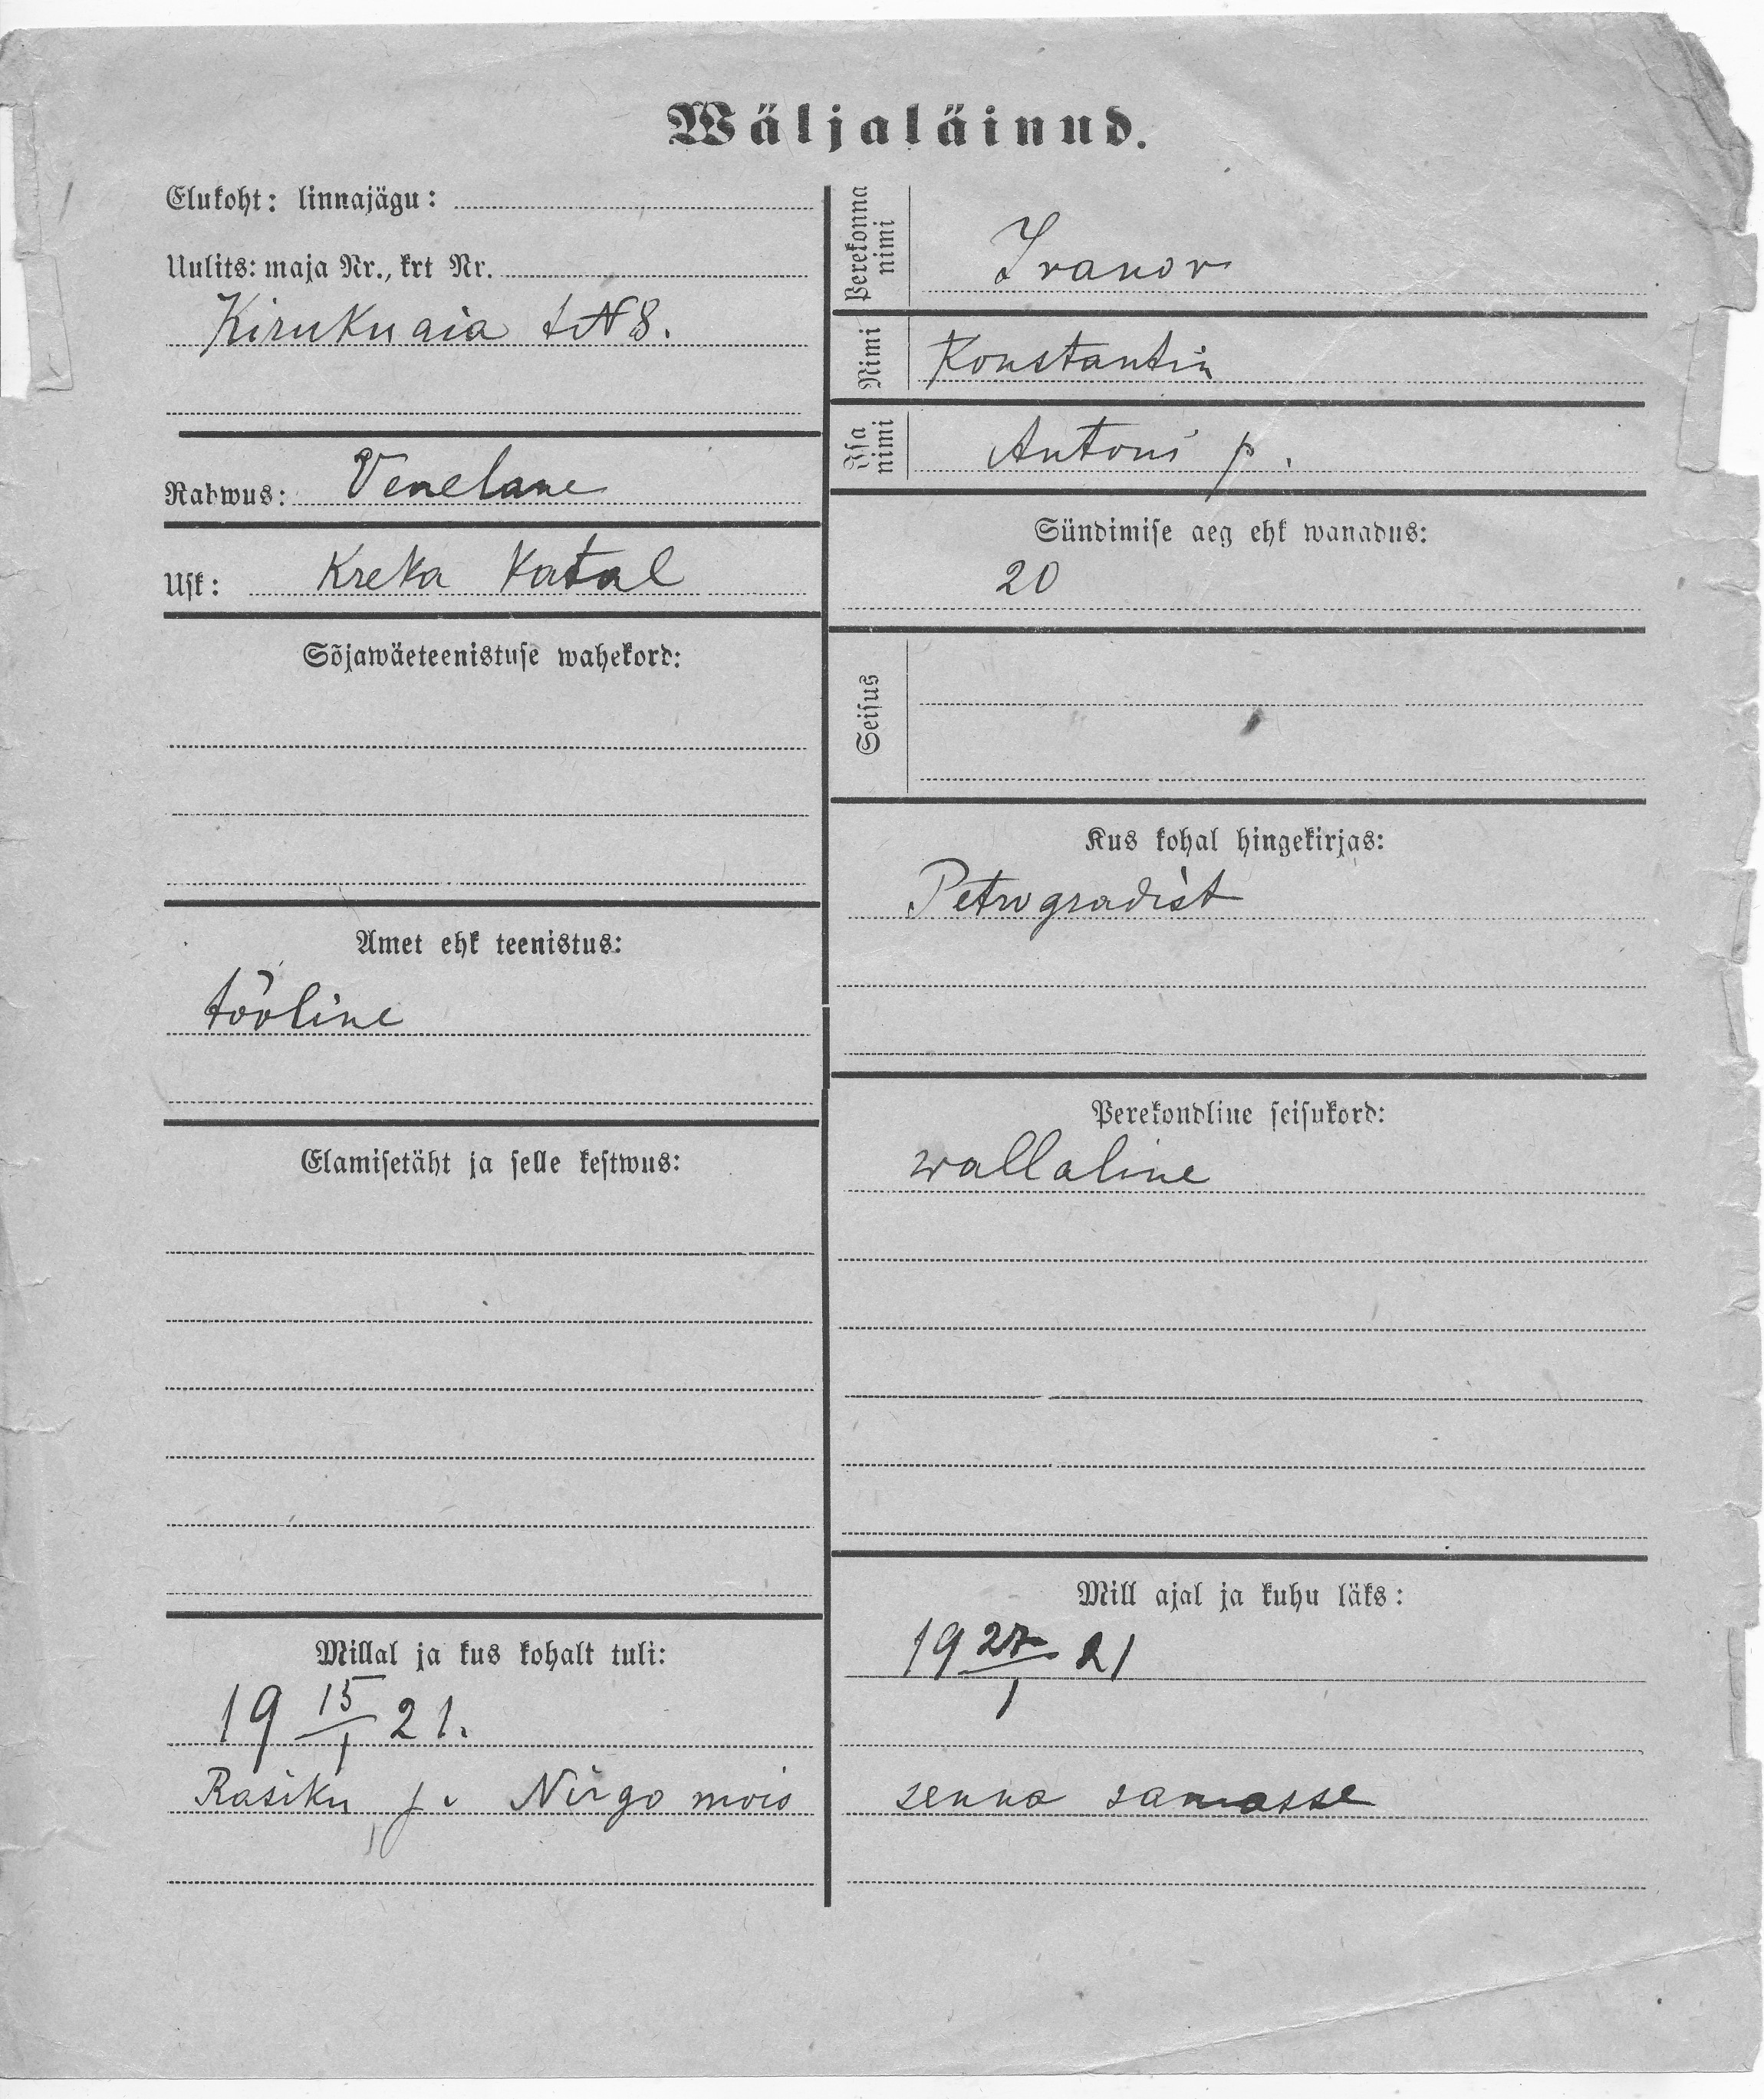 Wäljaläinud.
Elukoht: linnajägu:
Uulits: maja Nr., krt Nr.
Kirukuaia t N 8.
Rahwus: Venelane
Usk: Kreka Katol
Sõjawäeteenistuse wahekord:
Amet ehk teenistus:
tööline
Elamisetäht ja selle kestwus:
Millal ja kus kohalt tuli:
19 15/I 21.
Rasiku j. Nirgo mois
Perekonna nimi
Ivanov
Nimi
Konstantin
Isa nimi
Antoni p.
Sündimise aeg ehk wanadus:
20
Seisus
Kus kohal hingekirjas:
Petrogradist
Perekondline seisukord:
wallaline
Mill ajal ja kuhu läks:
19 27/I 21
senna samasse